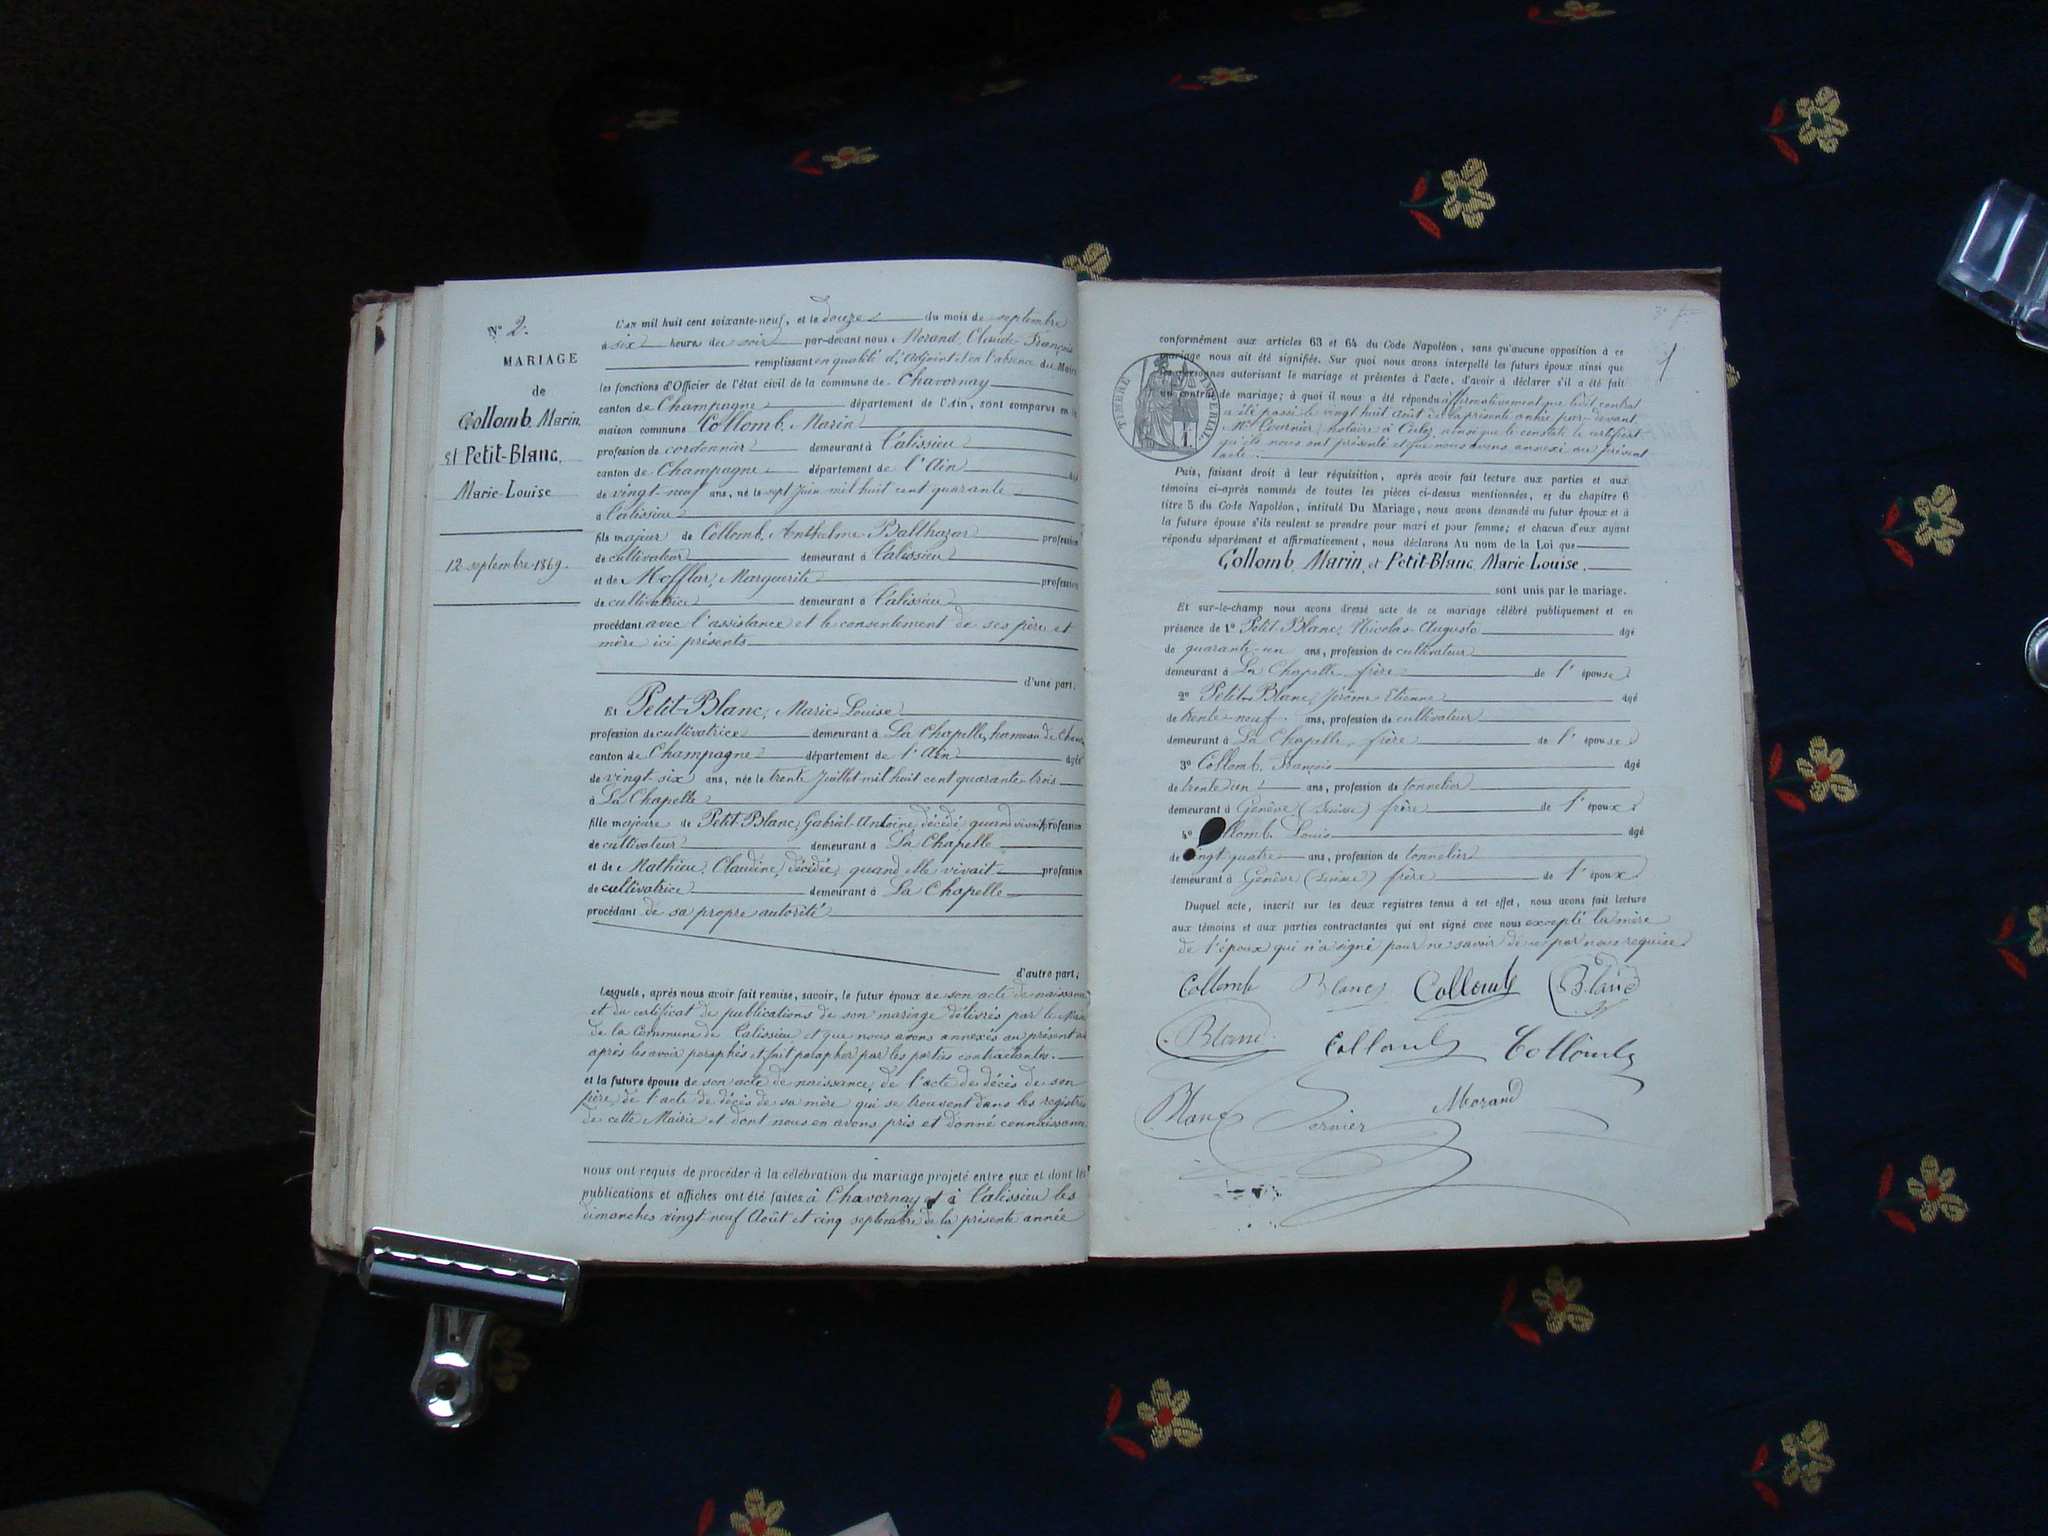 N° 2.
MARIAGE
de
Collomb, Marin,
et Petit-Blanc,
Marie-Louise
12 septembre 1869.
L'an mil huit cent soixante-neuf, et le douze du mois de septembre
à six heures du soir par-devant nous Morand, Claude-François
remplissant en qualité d'Adjoint et en l'absence du Maire
les fonctions d'Officier de l'état civil de la commune de Chavornay
canton de Champagne département de l'Ain, sont comparus en la
maison commune Collomb, Marin
profession de cordonnier demeurant à Talissieu
canton de Champagne département de l'Ain âgé
de vingt-neuf ans, né le sept Juin mil huit cent quarante
à Talissieu
fils majeur de Collomb, Anthelme Balthazar profession
de cultivateur demeurant à Talissieu
et de Mofflar, Marguerite profession
de cultivatrice demeurant à Talissieu
procédant avec l'assistance et le consentement de ses père et
mère ici présents
d'une part.
Et Petit-Blanc, Marie-Louise
profession de cultivatrice demeurant à La Chapelle, hameau de
canton de Champagne département de l'Ain âgée
de vingt-six ans, née le trente Juillet mil huit cent quarante-trois
à La Chapelle
fille majeure de Petit-Blanc, Gabriel-Antoine, décédé, quand vivait profession
de cultivateur demeurant à La Chapelle
et de Mathieu, Claudine, décédée, quand elle vivait profession
de cultivatrice demeurant à La Chapelle
procédant de sa propre autorité
d'autre part.
Lesquels, après nous avoir fait remise, savoir, le futur époux de son acte de naissance
et du certificat de publications de son mariage délivrés par le Maire
de la Commune de Talissieu et que nous avons annexés au présent
après les avoir paraphés et fait parapher par les parties contractantes.
et la future épouse de son acte de naissance, de l'acte de décès de son
père, de l'acte de décès de sa mère qui se trouvent dans les registres
de cette Mairie et dont nous en avons pris et donné connaissance
nous ont requis de procéder à la célébration du mariage projeté entre eux et dont les
publications et affiches ont été faites à Chavornay et à Talissieu les
dimanches vingt-neuf Août et cinq septembre de la présente année
conformément aux articles 63 et 64 du Code Napoléon, sans qu'aucune opposition à ce
mariage nous ait été signifiée. Sur quoi nous avons interpellé les futurs époux ainsi que
les personnes autorisant le mariage et présentes à l'acte, d'avoir à déclarer s'il a été fait
un contrat de mariage; à quoi il nous a été répondu affirmativement que ledit contrat
a été passé le vingt huit août de la présente année par-devant
Me notaire à ainsi que le constate le certificat
qu'ils nous ont présenté et que nous avons annexé au présent
acte.
TIMBRE IMPÉRIAL
1
Puis, faisant droit à leur réquisition, après avoir fait lecture aux parties et aux
témoins ci-après nommés de toutes les pièces ci-dessus mentionnées, et du chapitre 6
titre 5 du Code Napoléon, intitulé Du Mariage, nous avons demandé au futur époux et à
la future épouse s'ils veulent se prendre pour mari et pour femme; et chacun d'eux ayant
répondu séparément et affirmativement, nous déclarons Au nom de la Loi que
Collomb, Marin, et Petit-Blanc, Marie-Louise.
sont unis par le mariage.
Et sur-le-champ nous avons dressé acte de ce mariage célébré publiquement et en
présence de 1° Petit-Blanc, Nicolas-Auguste âgé
de quarante-un ans, profession de cultivateur
demeurant à La Chapelle, frère de l'épouse
2° Petit-Blanc, Jérôme-Etienne âgé
de trente-neuf ans, profession de cultivateur
demeurant à La Chapelle, frère de l'épouse
3° Collomb, François âgé
de trente-un ans, profession de tonnelier
demeurant à Genève (Suisse) frère de l'époux
4° Collomb, Louis âgé
de vingt-quatre ans, profession de tonnelier
demeurant à Genève (Suisse) frère de l'époux
Duquel acte, inscrit sur les deux registres tenus à cet effet, nous avons fait lecture
aux témoins et aux parties contractantes qui ont signé avec nous excepté la mère
de l'époux qui n'a signé pour ne savoir de ce par nous requise
Collomb Blanc Collomb Blanc
Blanc Collomb Collomb
Blanc Morand